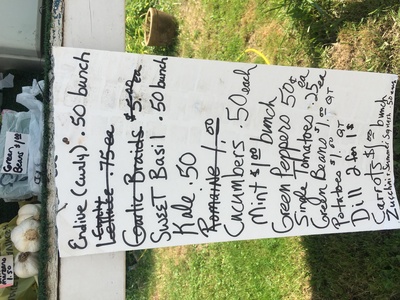 1.50
Green
Beans $1.00
Endive (curly) .50 bunch
Lettuce .75 ea
Garlic Braids $5.00 ea
Sweet Basil .50 bunch
Kale .50
Romaine 1.00
Cucumbers .50 each
Mint $1.00 bunch
Green Peppers 50¢ ea
Single Tomatoes .25 ea
Green Beans $1.00 QT
Potatoes $1.50 QT
Dill 2 for 1$
Carrots $1.00 bunch
Zucchini + Summer Squash .50 each